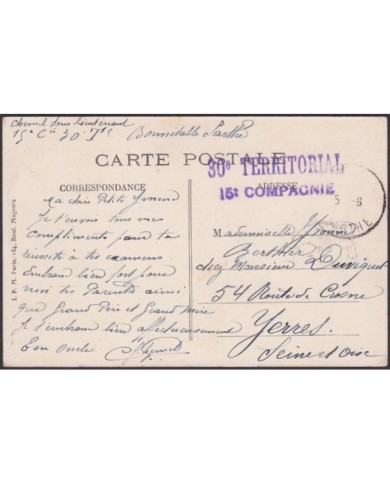 Chenel Sous Lieutenant
15e Cie 30e Tal
Bonnétable Sarthe
CARTE POSTALE
30e TERRITORIAL
15e COMPAGNIE
CORRESPONDANCE
ADRESSE
5 - 8
Ma chère Petite Yvonne
Je t'envoie tous mes
compliments pour ta
réussite à tes examens
Embrasse bien fort pour
moi tes Parents ainsi
que Grand Père et Grand Mère
Je t'embrasse bien affectueusement
Ton Oncle
Mademoiselle Yvonne
Berthier
chez Monsieur Duvigne
54 Route de Crosne
Yerres
Seine et Oise
I. P. M. Paris. - 74, Boul. Magenta